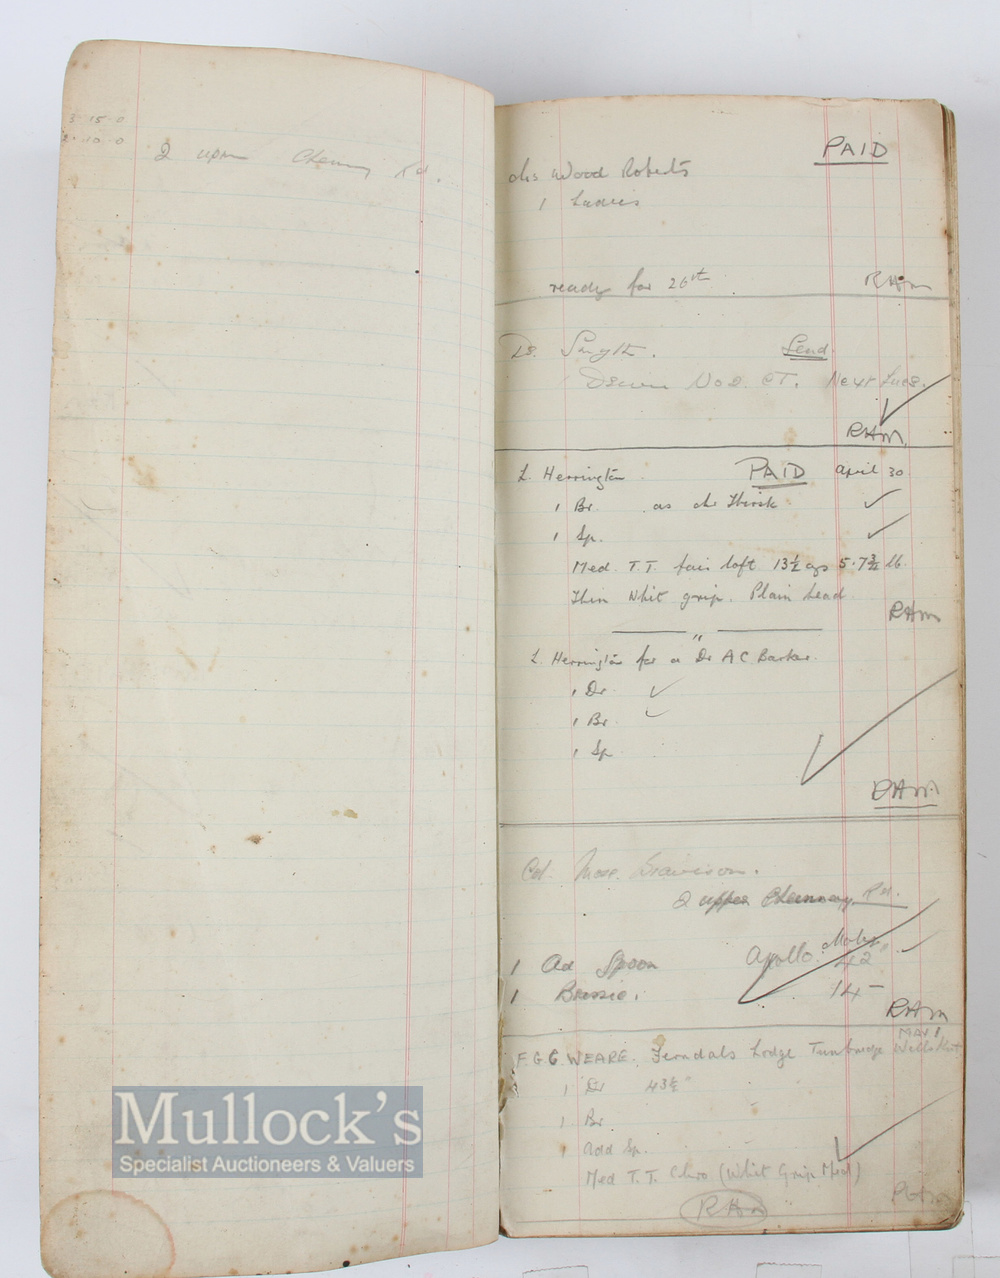 3 15 0
2 10 0
2 upper Rd.
PAID
Wood Roberts
1 Ladies
ready for 26th
RHM
Dr. Smyth. Send
No 2. CT. Next Tues.
RHM
L. Herrington PAID April 30
1 Br. as Thick
1 Sp.
Med. T.T. fair loft 13½ 5.7
Thin Whit grip. Plain head
RHM
"
L. Herrington for a Dr A C Barker.
1 Dr
1 Br.
1 Sp
RHM
Col.
2 upper Rd.
1 Ad Spoon Apollo. 42
1 Brassie. 14 -
RHM
MAY 1,
F.G.G. WEARE. Ferndals Lodge Tunbridge Wells Kent
1 Dr 43½"
1 Br.
1 Add Sp.
Med T.T. Chro (Whit Grip Med)
RHM
RHM
Mullock's
Specialist Auctioneers & Valuers